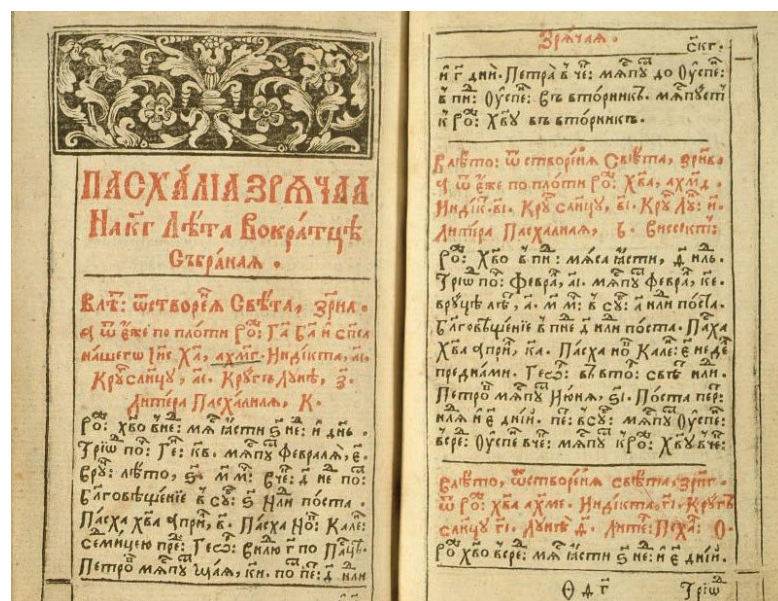 ПАСХАЛІА ЗРѦЧАА
На к҃г Лѣта Вократцѣ
Събраная.
Влѣ: ѿ створеніѧ Свѣта,
а ѿ еже по плоти Ро:
нашегѡ Іѵс Ха, ахмг. Индікта, аі.
Круг слнцу, аі. Кругъ Лунѣ, з.
Литера Пасхалнаѧ, К.
Ро: Хво вне: мѧ ꙗсти ѕ не: и днъ.
Тріѡ по: Ге: кв. мѧпу Февралѧ, є.
Вру: лѣто, ѕ. м м: вче: д не по:
Благовѣщеніе в су: ѕ Нли поста.
Пасха Хва апри, в. Пасха Но: Кале:
семицею пре: Гео: по Пацѣ.
Петро мѧпу Маѧ, ки. по пе: д или
Зрѧчаѧ. скг.
и г дни. Петра в че: мѧпу до Оуспе:
в пн: Оуспе: въ вторникъ. мѧпусті
к Ро: Хву въ вторникъ.
Влѣто: ѿ створеніѧ Свѣта,
а ѿ еже по плоти Ро: Хва, ахмд.
Индік. ві. Кру слнцу, ві. Кру Лу: и.
Литера Пасхалнаѧ, Виссекті:
Ро: Хво в пн: мѧса ꙗсти, д нль.
Тріѡ по: Февра, аі. мѧпу Февра, ке.
вруцѣ лѣ, а. м м: в су: а нли поста.
Благовѣщеніе в пне д нли поста. Паха
Хва апри, ка. Пасха но Кале: є неде
преднами. Гео: въ вто: свѣ нли.
Петро мѧпу Июнѧ, ѕі. Поста пер:
нлѧ и є дній. пе: всу: мѧпу Оуспе:
вере: Оуспе вче: мѧпу к Ро: Хву вче:
Влѣто, ѿ створеніѧ свѣта,
ѿ Ро: хва ахме. Индікта, гі. Кругъ
слнцу гі. Лунѣ д. Лите: Псха: О.
Ро Хво вере: мѧ ꙗсти ѕ не: и є дній.
Тріѡ